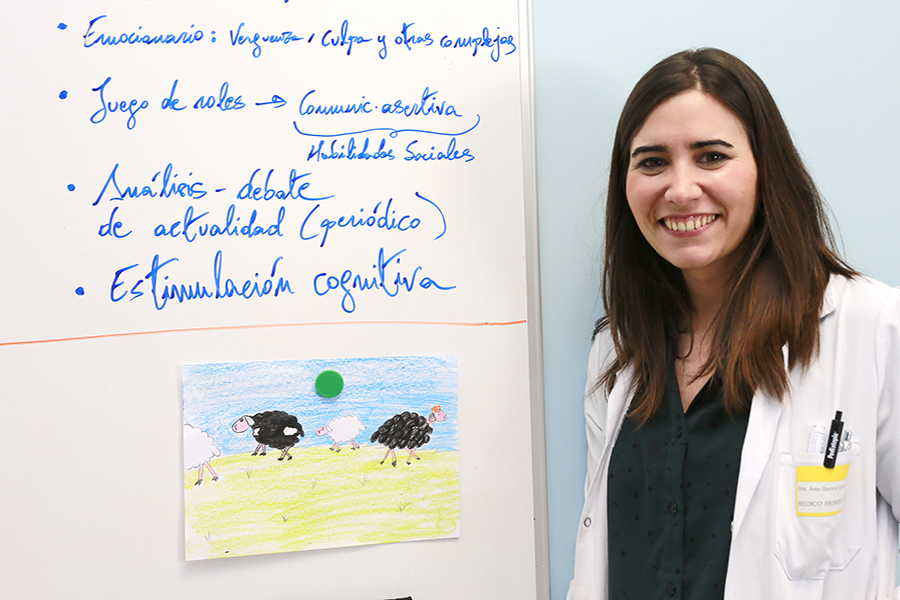 • Emocionario: Vergüenza, culpa y otras complejos
• Juego de roles → Comunic. asertiva
Habilidades Sociales
• Análisis - debate
de actualidad (periódico)
• Estimulación cognitiva
Dra. Ana
MEDICO